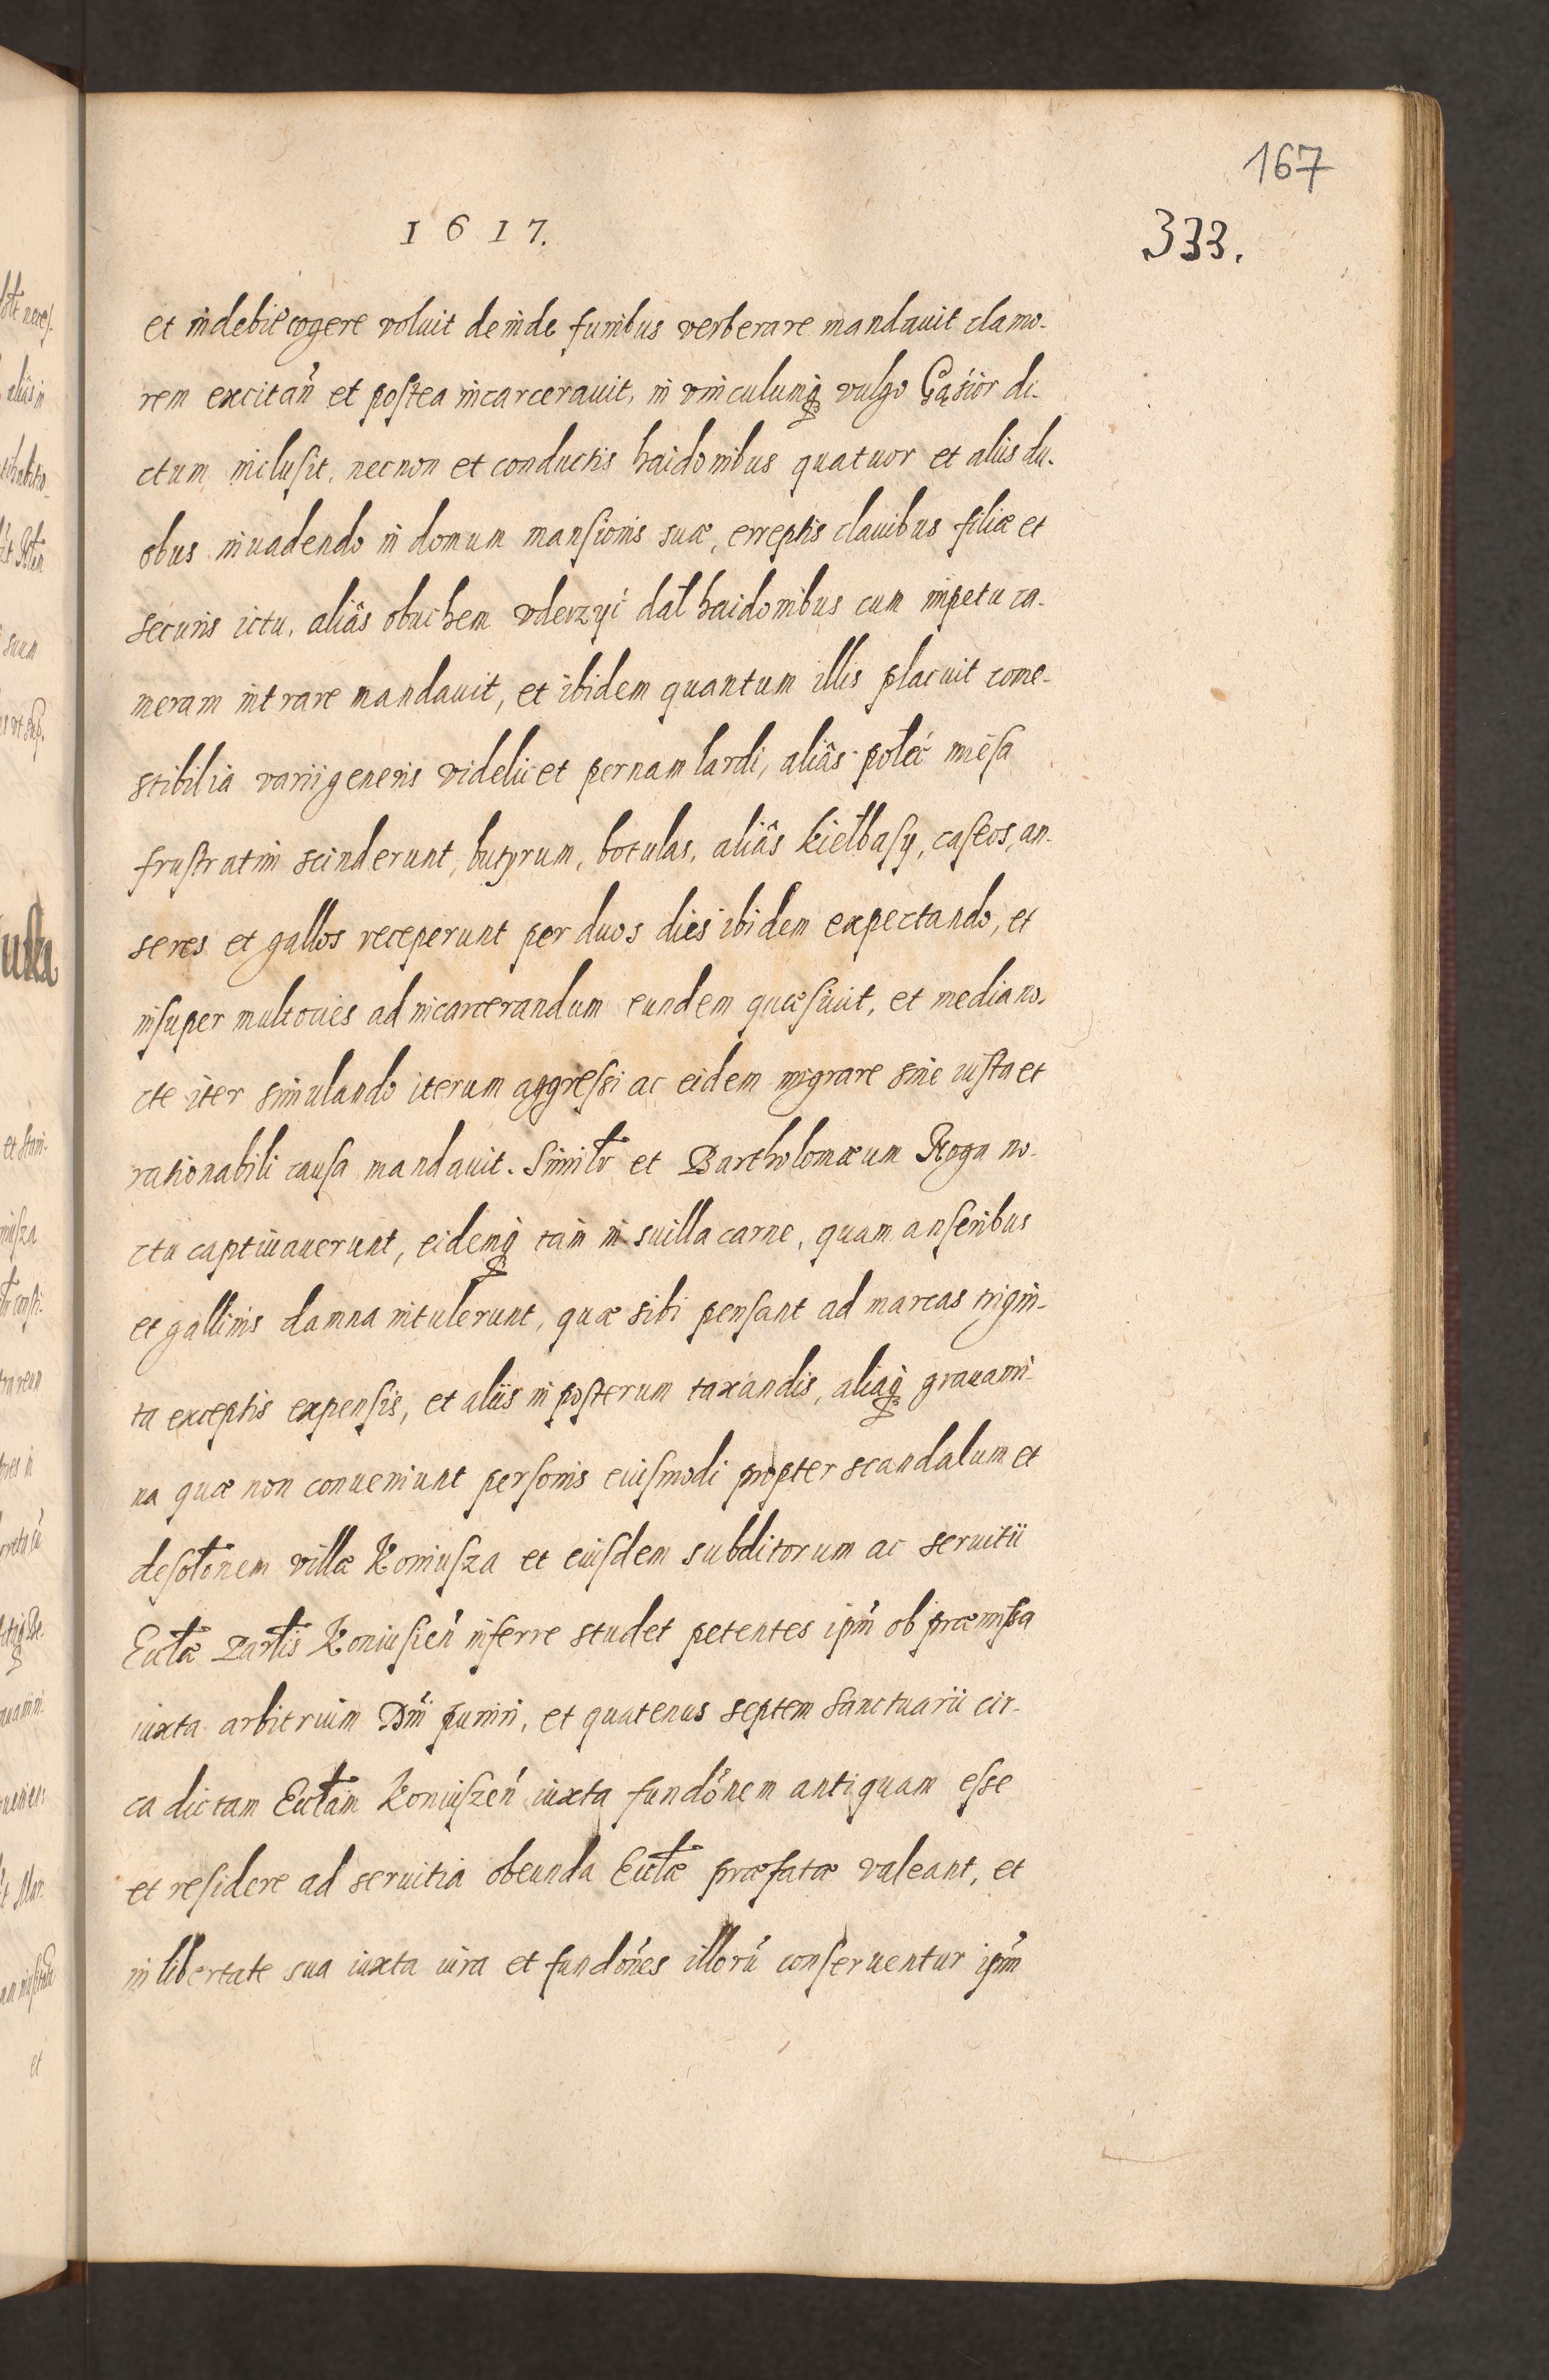 167
1617.
333.
et indebite cogere voluit deinde funibus verberare mandauit clamo-
rem excitan̄ et postea incarcerauit, in vinculumq̨ vulgo Gąsior di-
ctum inclusit, necnon et conductis haidonibus quatuor et aliis du-
obus inuadendo in domum mansionis suæ, erreptis clauibus filiæ et
securis ictu, aliâs obuchem vderzyć dał haidonibus cum impetu ca-
meram intrare mandauit, et ibidem quantum illis placuit come-
stibilia varii generis videlicet pernam lardi, aliâs połeć miesa
frustratim scinderunt, butyrum, botulas, aliâs kiełbasy, caseos, an-
seres et gallos receperunt per duos dies ibidem expectando, et
insuper multoties ad incarcerandum eundem quæsiuit, et media no-
cte iter simulando iterum aggressi ac eidem migrare sine iusta et
rationabili causa mandauit. Similr̄ et Bartholomæum Rogu no-
ctu captiuauerunt, eidemq̨ tam in suilla carne, quam anseribus
et gallinis damna intulerunt, quæ sibi pensant ad marcas trigin-
ta exceptis expensis, et aliis in posterum taxandis, aliaq̨ grauami-
na quæ non conueniunt personis eiusmodi propter scandalum et
desolōnem villæ Koniusza et eiusdem subditorum ac seruitii
Eccłæ Parłis Koniusien̄ inferre studet petentes ipm̄ ob præmissa
iuxta arbitrium Dn̄i puniri, et quatenus septem Sanctuarii cir-
ca dictam Eccłam Koniuszen̄ iuxta fundōnem antiquam esse
et residere ad seruitia obeunda Eccłæ præfatæ valeant, et
in libertate sua iuxta iura et fundōnes illorū conseruentur ipm̄